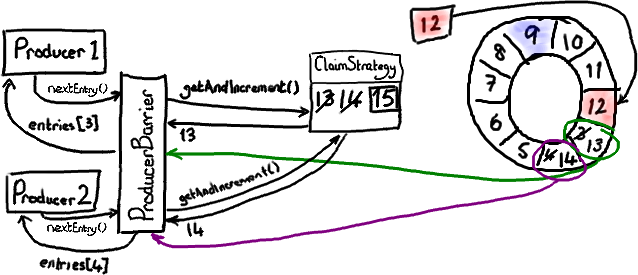 Producer 1
nextEntry()
entries[3]
Producer 2
nextEntry()
entries[4]
ProducerBarrier
getAndIncrement()
13
getAndIncrement()
14
ClaimStrategy
13 14 15
12
9
10
11
12
3 13
4 14
5
6
7
8